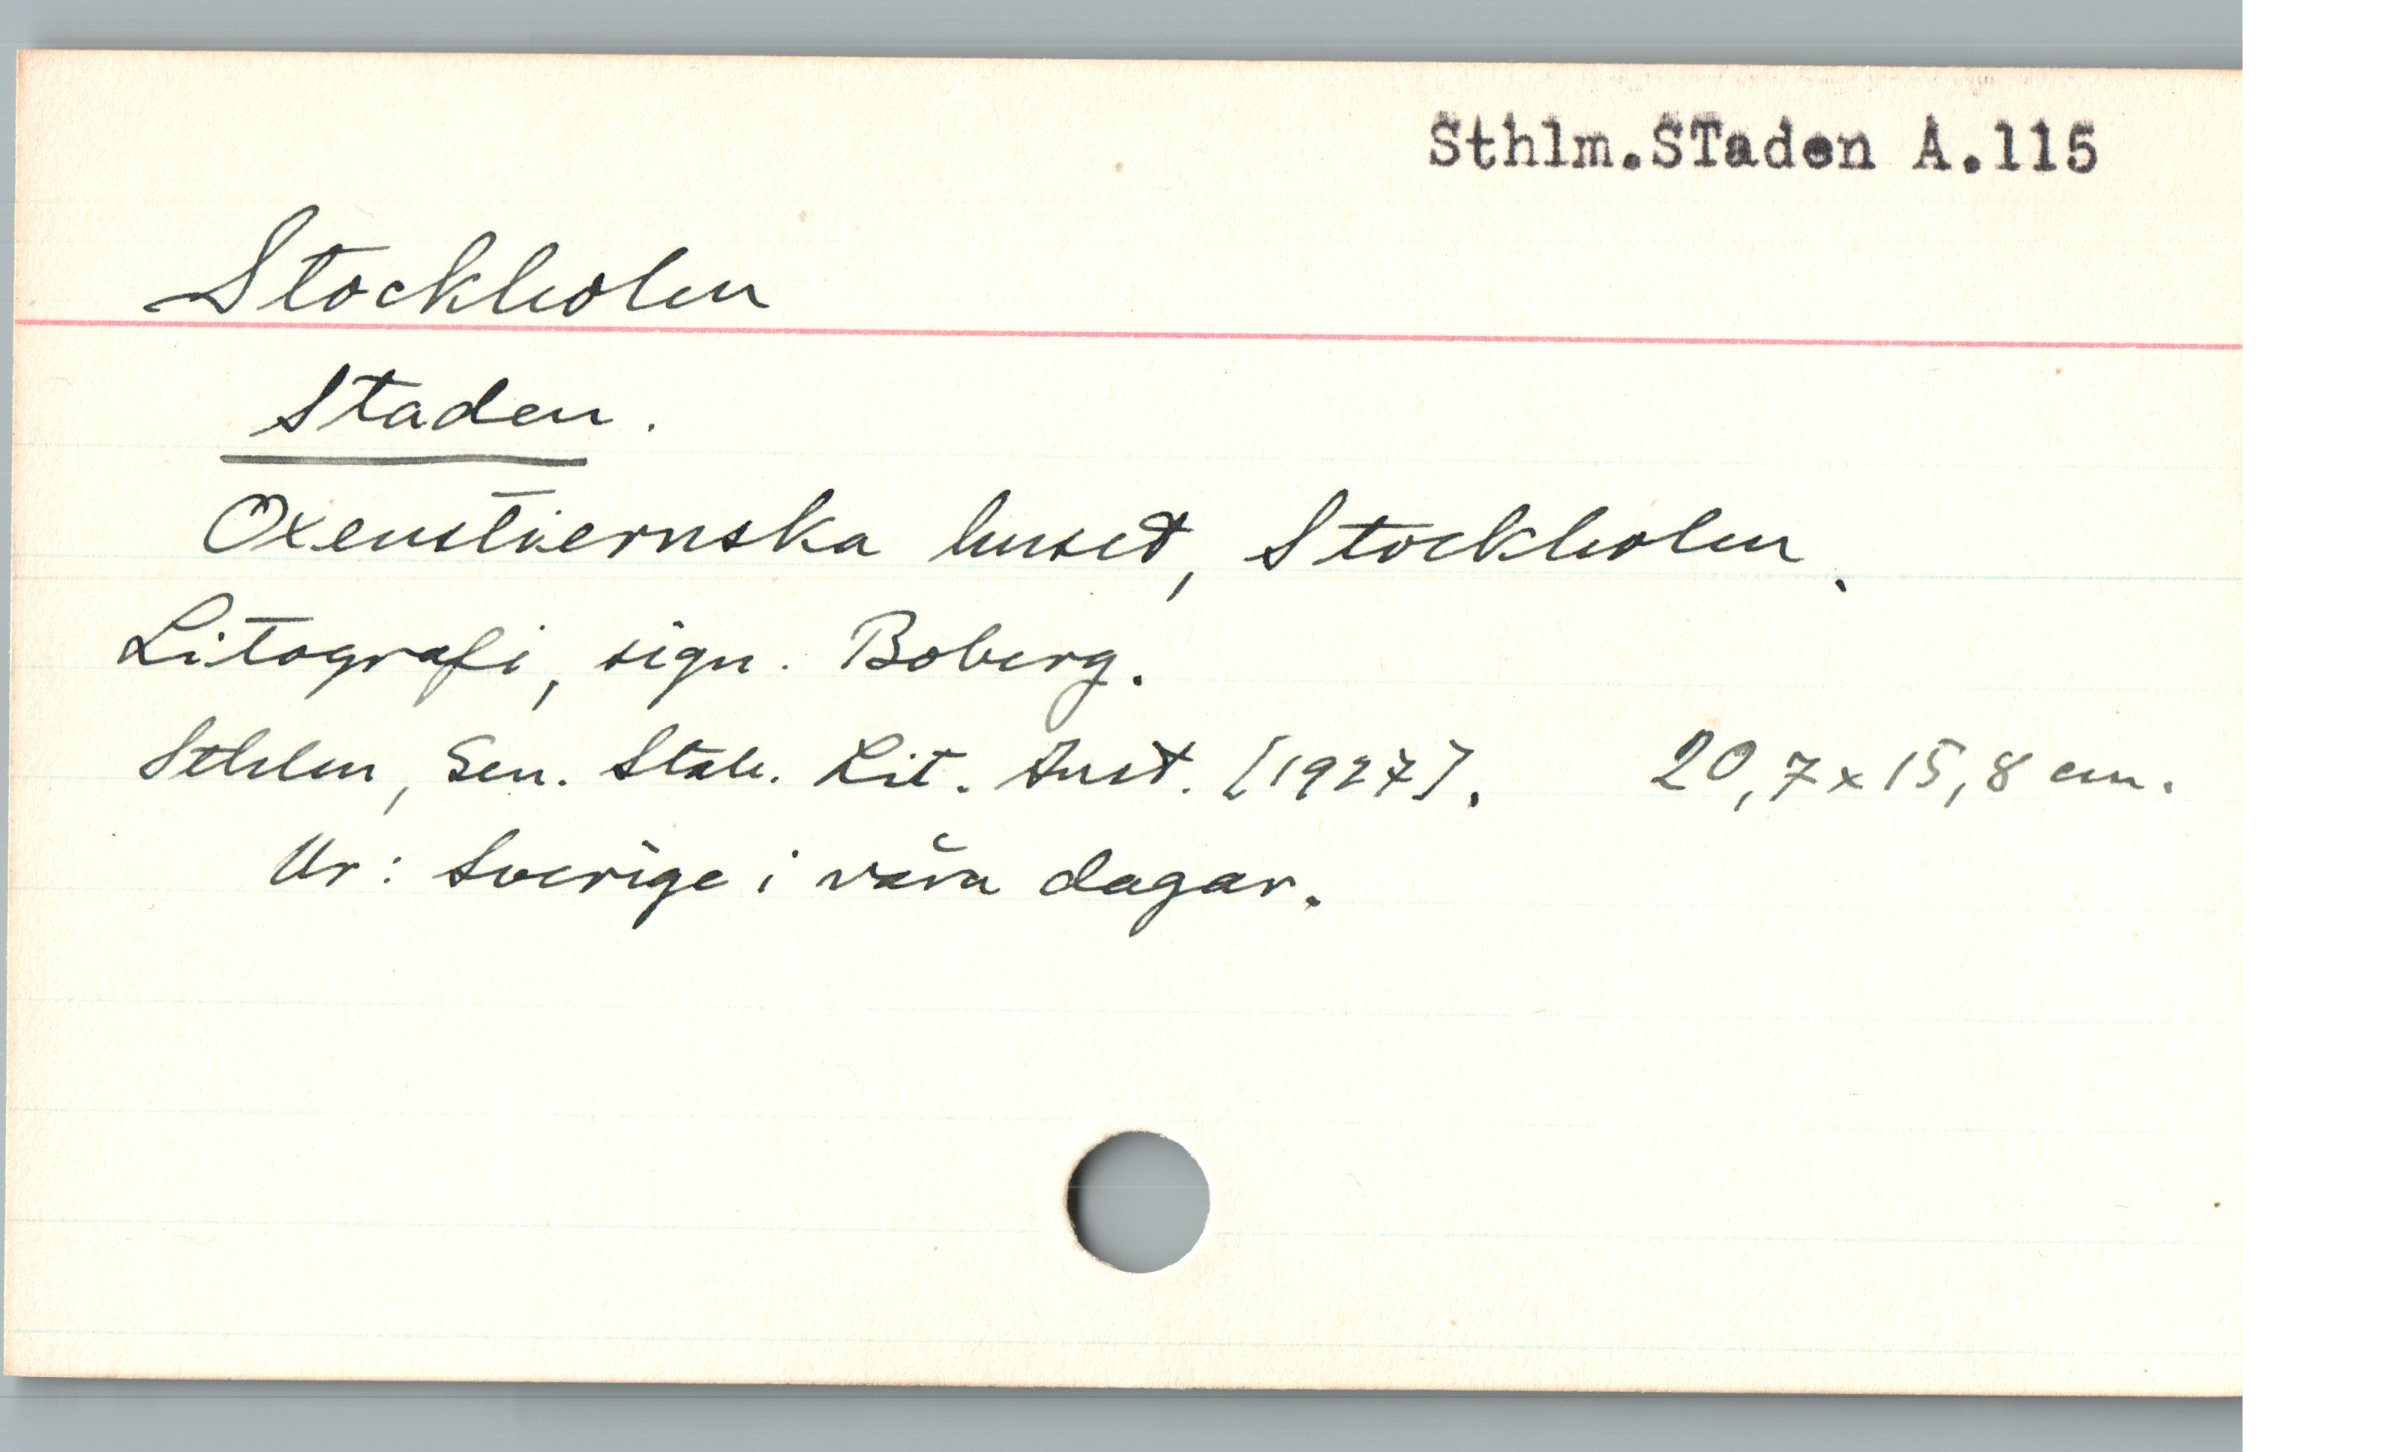 Sthlm.STaden A.115
Stockholm
Staden.
Oxenstiernska huset, Stockholm.
Litografi, sign. Boberg.
Sthlm, Gen. Stab. Lit. Anst. [1927]. 20,7 x 15,8 cm.
Ur: Sverige i våra dagar.